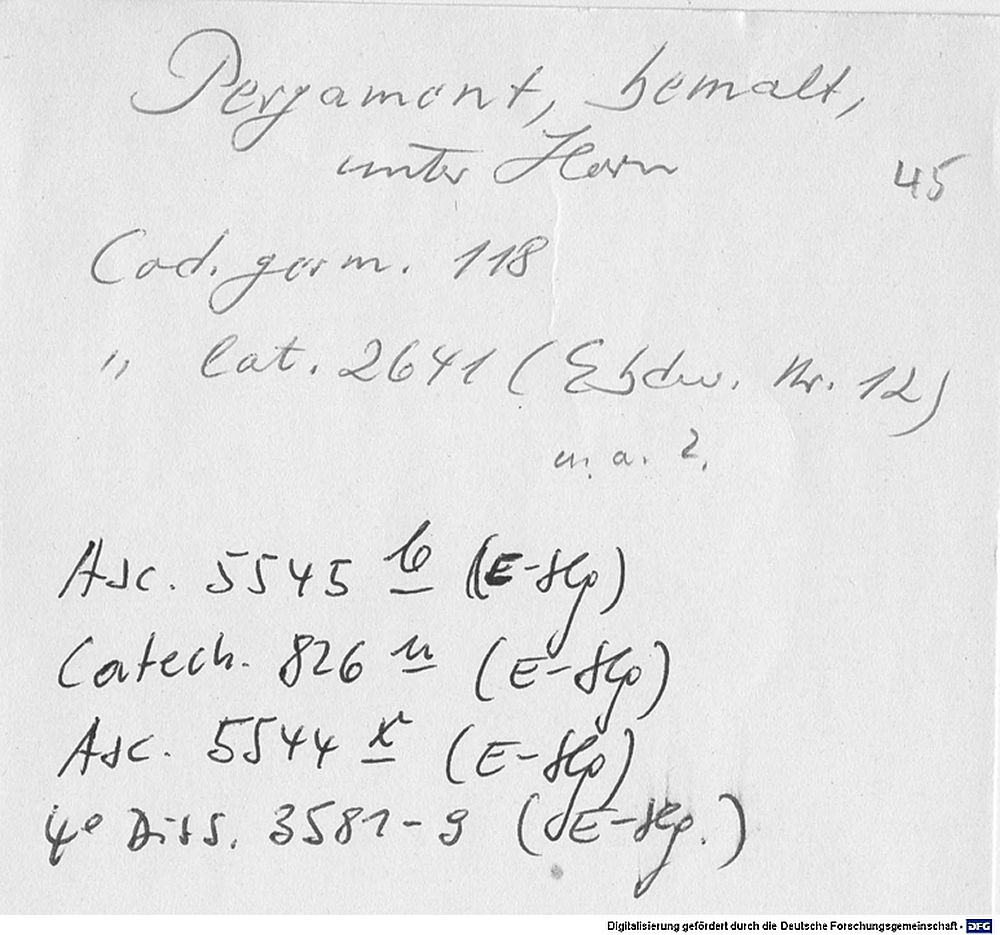 Pergament, bemalt,
unter Horn
45
Cod. germ. 118
" lat. 2641 (Ebdw. Nr. 12)
u. a. 2.
Asc. 5545 b (E-Slg)
Catech. 826 u (E-Slg)
Asc. 5544 x (E-Slg)
4° Diss. 3581-9 (E-Slg.)
Digitalisierung gefördert durch die Deutsche Forschungsgemeinschaft - DFG